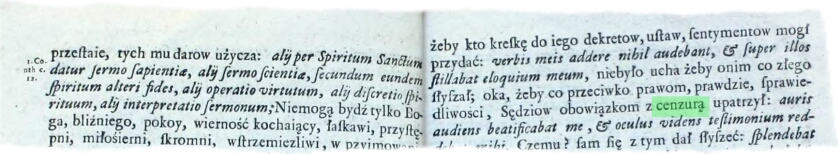 przeſtaie, tych mu darow użycza: alij per Spiritum Sanctum
1. Co.
nth c.
12.
datur ſermo ſapientiæ, alij ſermo ſcientiæ, ſecundum eundem
ſpiritum alteri fides, alij operatio virtutum, alij diſcretio ſpi-
rituum, alij interpretatio ſermonum; Niemogą bydź tylko Bo-
ga, bliźniego, pokoy, wierność kochaiący, łaſkawi, przyſtę-
pni, miłoſierni, ſkromni, wſtrzemiezliwi,
żeby kto kreſkę do iego dekretow, uſtaw, ſentymentow mogſ
przydać: verbis meis addere nihil audebant, & ſuper illos
ſtillabat eloquium meum, niebyło ucha żeby onim co złego
ſłyſzał; oka, żeby co przeciwko prawom, prawdzie, ſprawie-
dliwości, Sędziow obowiązkom z cenzurą upatrzył: auris
audiens beatificabat me, & oculus videns teſtimonium red-
Czemu? ſam ſię z tym dał ſłyſzeć: ſplendebat